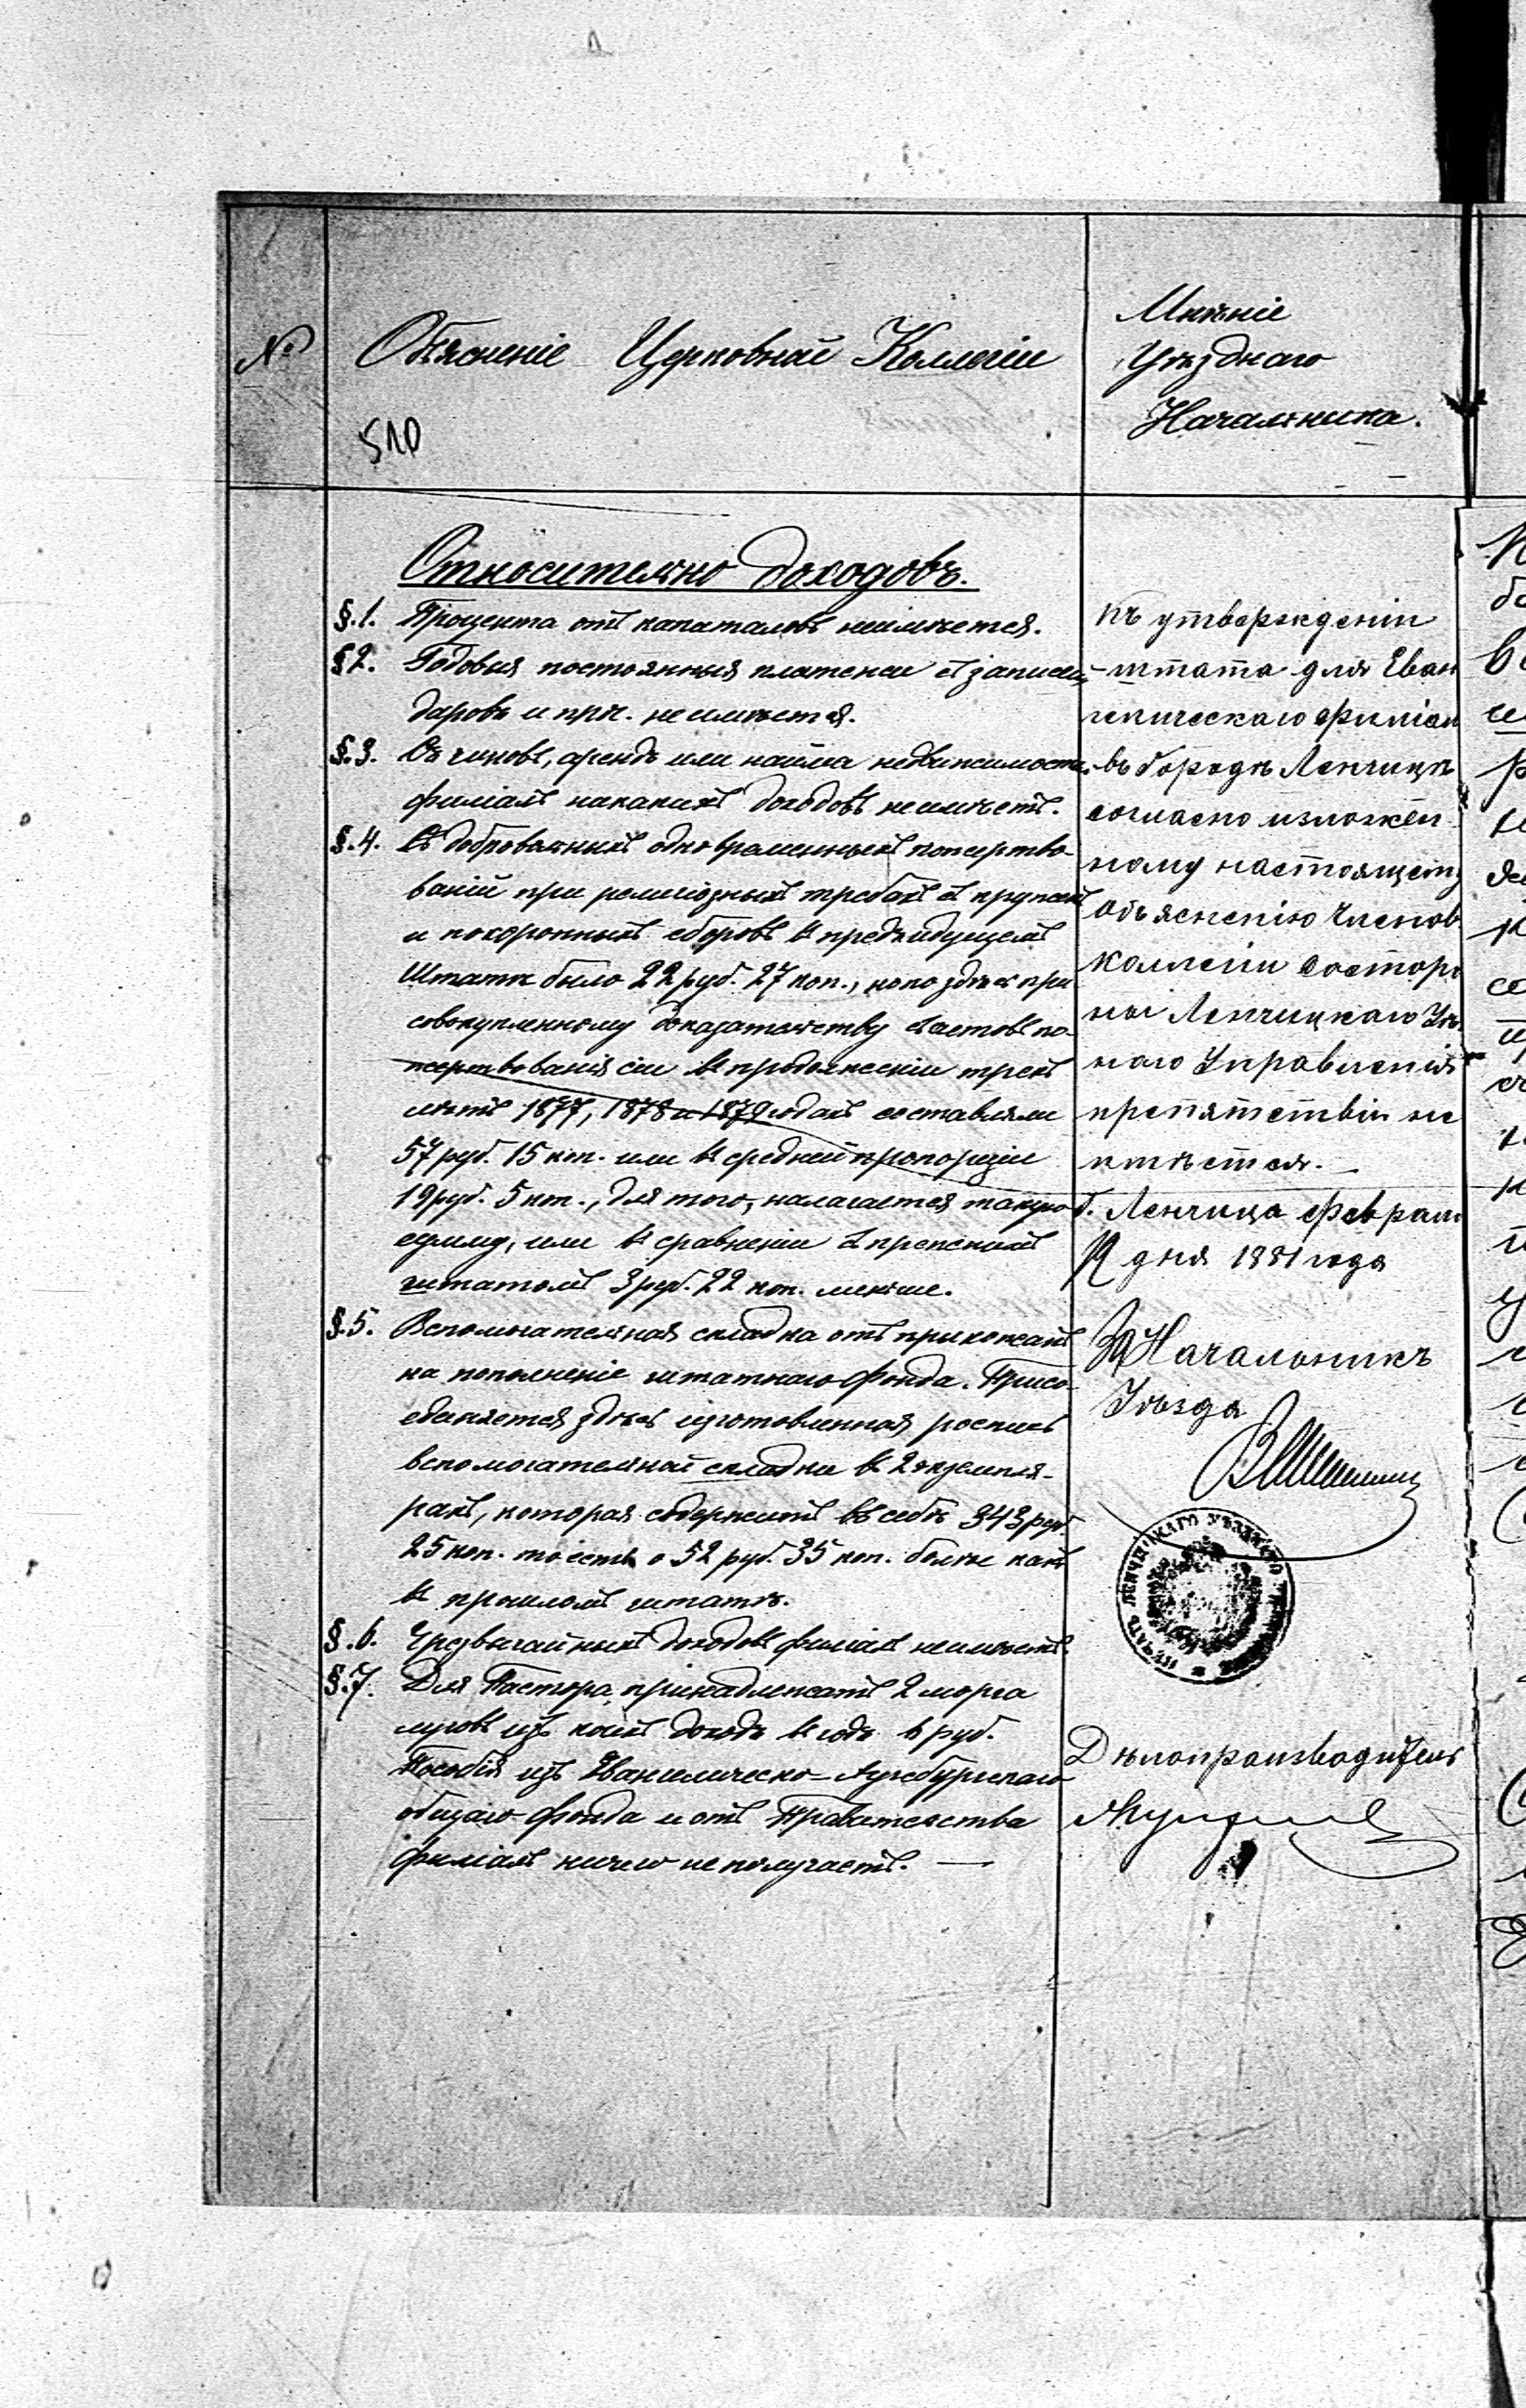 №
Объясненіе Церковной Коллегіи
510
Мнѣніе
Уѣзднаго
Начальника.
Относительно доходовъ.
§.1. Процента отъ капаталовъ неимѣется.
§2. Годовыя постоянныя платежи съ записей,
даровъ и прч. неимѣется.
§.3. Съ чиновъ, арендъ или найма недвижимости
филіалъ никакихъ доходовъ неимѣетъ.
§.4. Съ добровольныхъ одновременныхъ пожертво-
ваній при религіозныхъ требахъ съ кружекъ
и похоронныхъ сборовъ въ предъидущемъ
Штатѣ было 22 руб. 27 коп., но по здѣсь при
совокупленному доказательству съ актовъ по-
жертвованія сіи въ продолженіи трехъ
лѣтъ 1877, 1878 и 1879 годахъ составляли
57 руб. 15 коп. или въ средней пропорціи
19 руб. 5 коп., для того, налагается такую
сумму, или въ сравненіи съ прежнимъ
штатомъ 3 руб. 22 коп. меньше.
§.5. Вспомогательная складка отъ прихожанъ
на пополненіе штатнаго фонда. Присо-
единяется здѣсь изготовленная роспись
вспомогательной складки въ 2 экземпля-
рахъ, которая содержитъ въ себѣ 343 руб.
25 коп. то есть о 52 руб. 35 коп. болѣе какъ
въ прошломъ штатѣ.
§.6. Чрезвычайныхъ доходовъ филіалъ неимѣетъ.
§.7. Для Пастора принадлежатъ 2 морга
луговъ изъ коихъ доходъ въ годъ 6 руб.
Пособія изъ Евангелическо-Аугсбургскаго
общаго фонда и отъ Правительства
филіалъ ничего не получаетъ. —
Къ утвержденію
штата для Еван
гелическаго филіал
въ городѣ Ленчицѣ
согласно изложен
ному настоящему
объясненію членов
коллегіи состоро
ны Ленчицкаго Уѣ
наго Управленія
препятствій не
имѣется. —
г. Ленчица Феврал
дня 1881 года
Начальникъ
Уѣзда
Дѣлопроизводитель